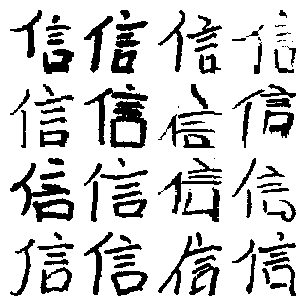 信信信信
信信信信
信信信信
信信信信